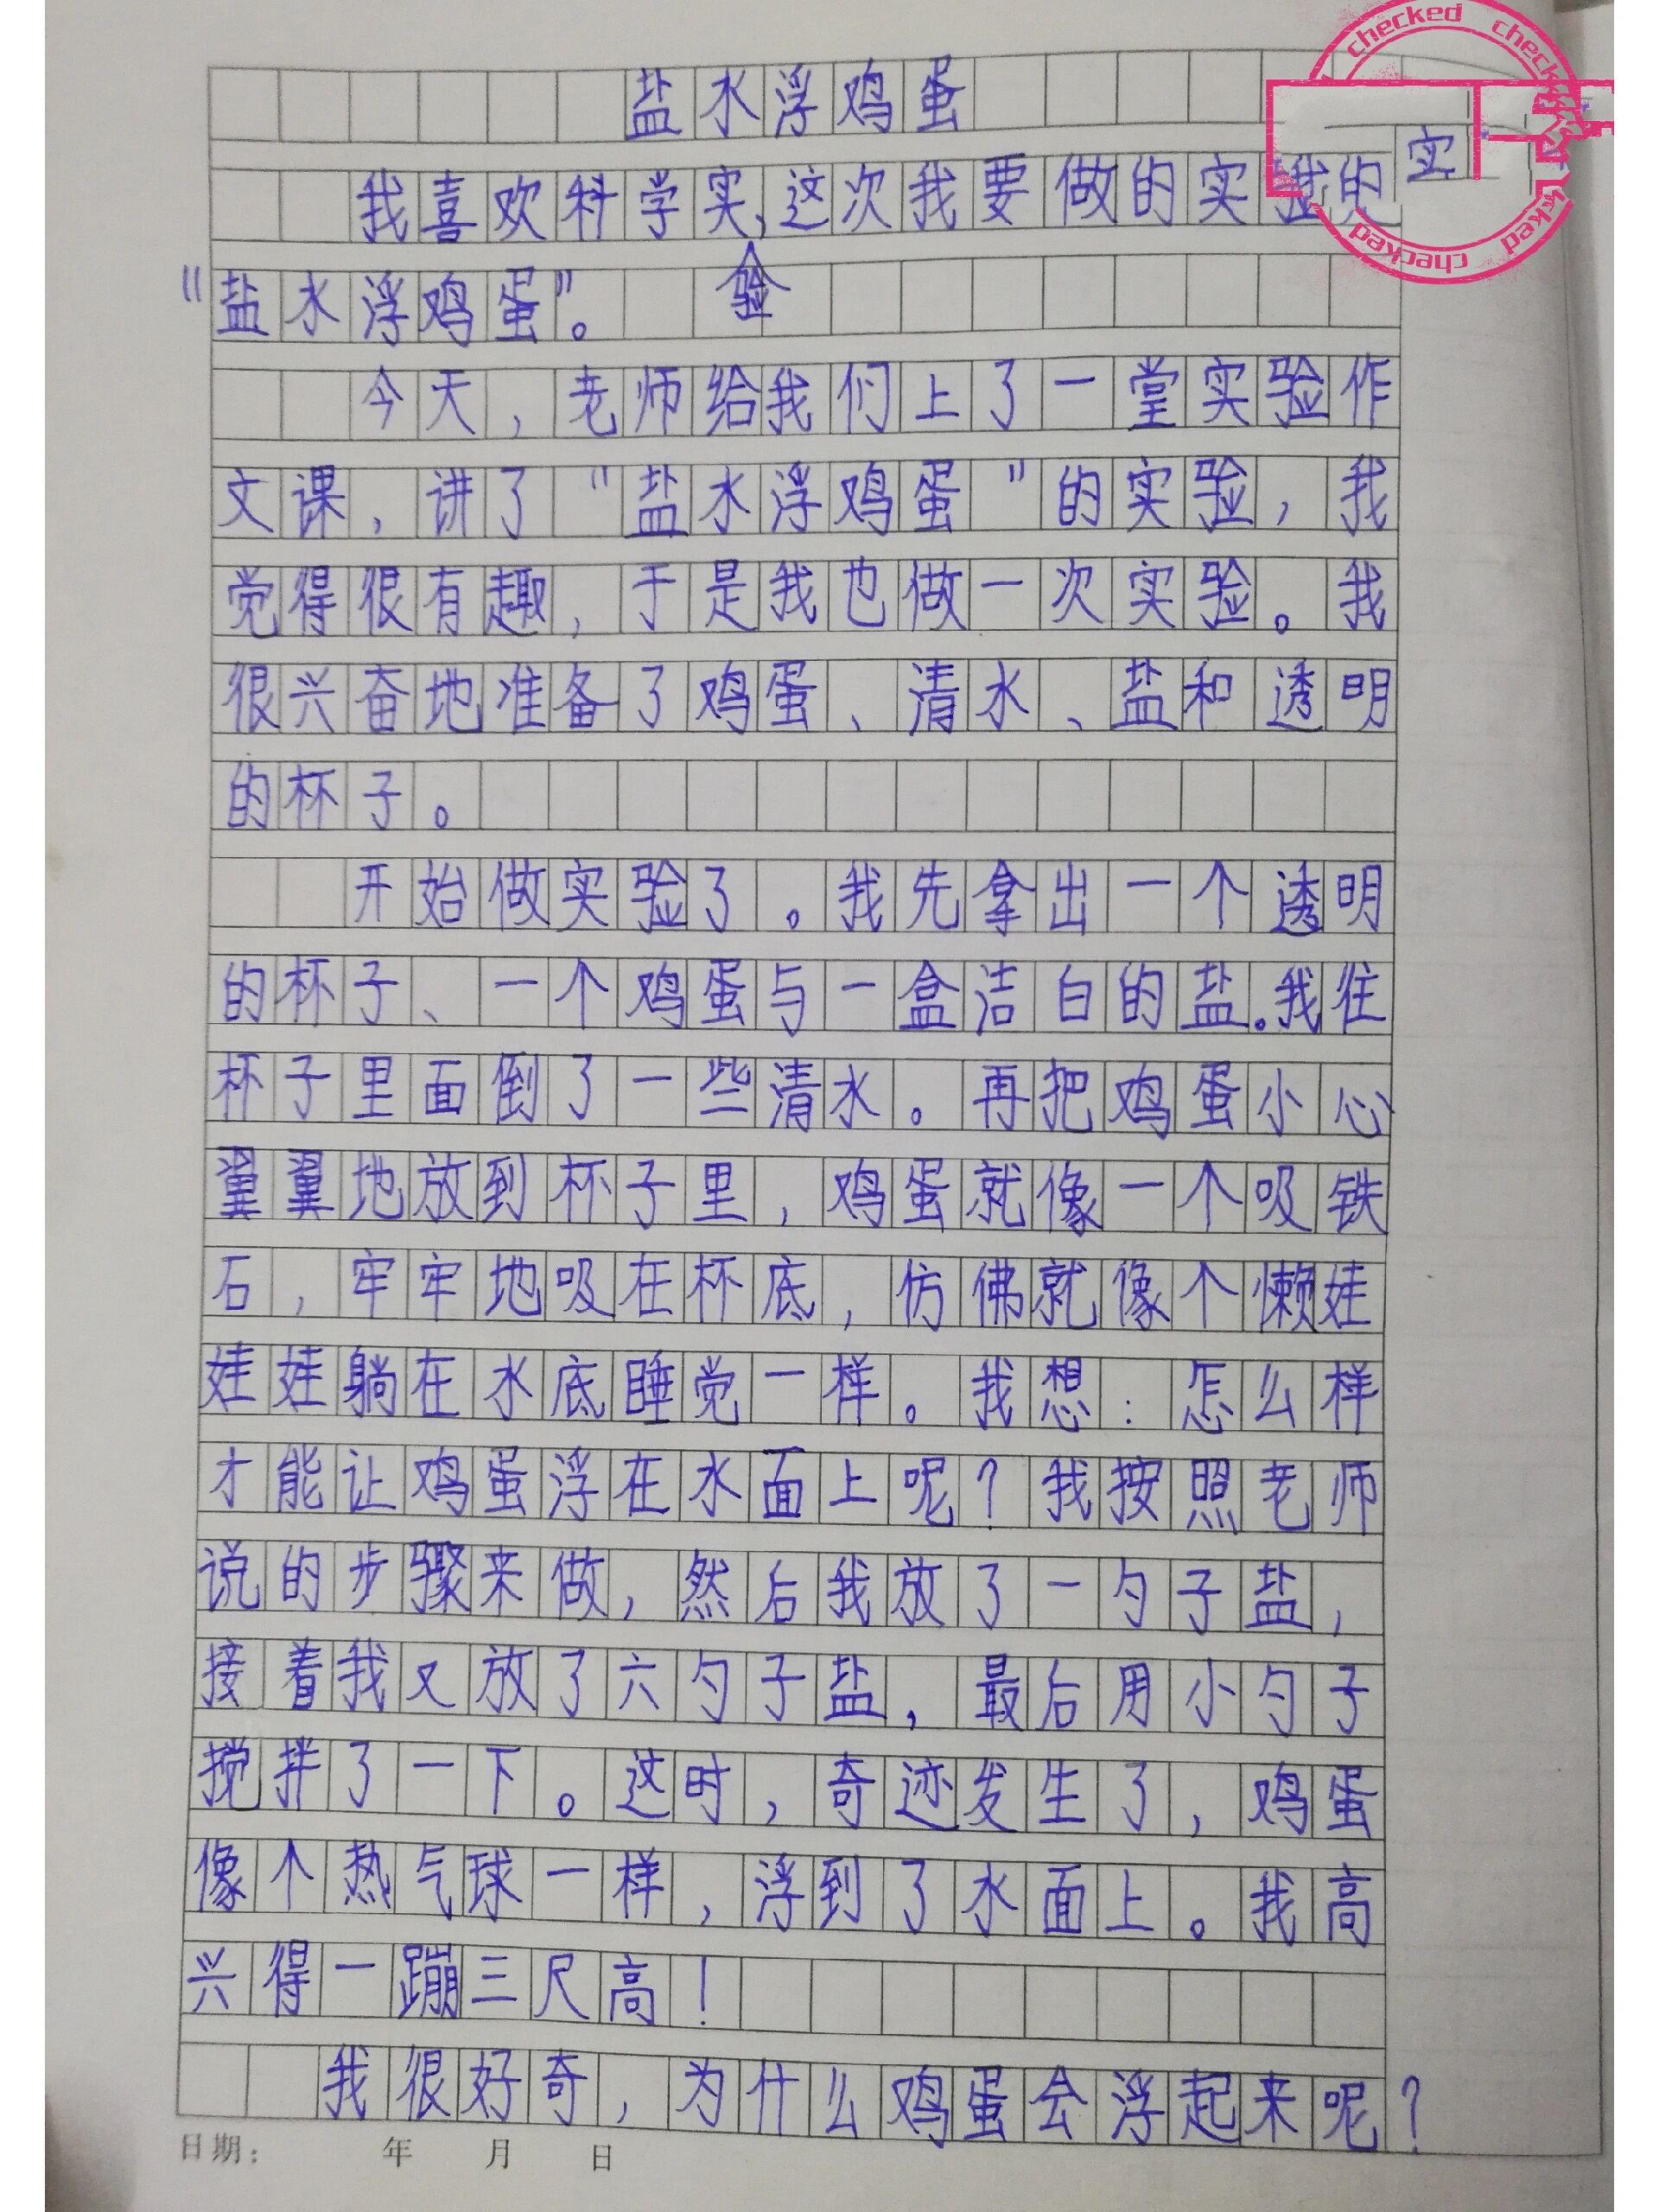 盐水浮鸡蛋
我喜欢科学实验,这次我要做的实验的实
"盐水浮鸡蛋"。
今天,老师给我们上了一堂实验作
文课,讲了"盐水浮鸡蛋"的实验,我
觉得很有趣,于是我也做一次实验。我
很兴奋地准备了鸡蛋、清水、盐和透明
的杯子。
开始做实验了。我先拿出一个透明
的杯子、一个鸡蛋与一盒洁白的盐。我往
杯子里面倒了一些清水。再把鸡蛋小心
翼翼地放到杯子里,鸡蛋就像一个吸铁
石,牢牢地吸在杯底,仿佛就像个懒娃
娃娃躺在水底睡觉一样。我想:怎么样
才能让鸡蛋浮在水面上呢?我按照老师
说的步骤来做,然后我放了一勺子盐,
接着我又放了六勺子盐,最后用小勺子
搅拌了一下。这时,奇迹发生了,鸡蛋
像个热气球一样,浮到了水面上。我高
兴得一蹦三尺高!
我很好奇,为什么鸡蛋会浮起来呢?
日期: 年 月 日
checked checked checked checked